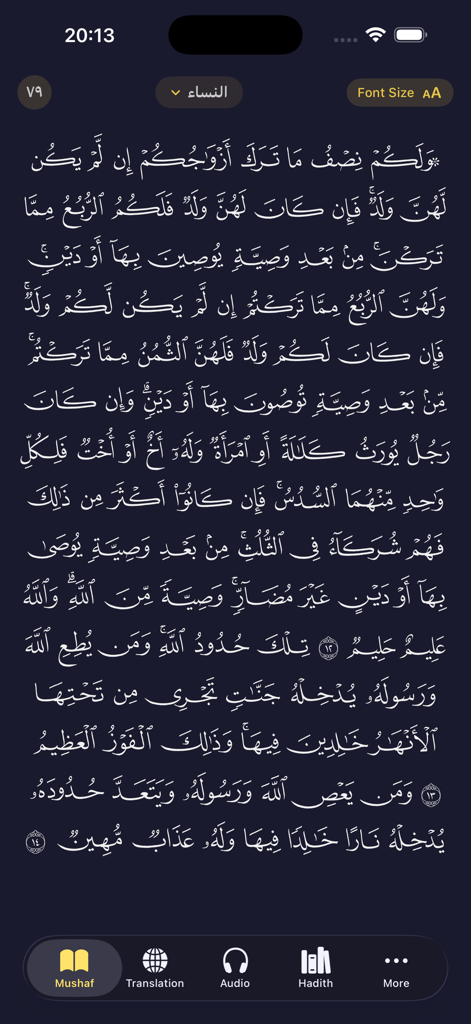 20:13
٧٩
النساء
Font Size AA
۞وَلَكُمۡ نِصۡفُ مَا تَرَكَ أَزۡوَٰجُكُمۡ إِن لَّمۡ يَكُن
لَّهُنَّ وَلَدٞۚ فَإِن كَانَ لَهُنَّ وَلَدٞ فَلَكُمُ ٱلرُّبُعُ مِمَّا
تَرَكۡنَۚ مِنۢ بَعۡدِ وَصِيَّةٖ يُوصِينَ بِهَآ أَوۡ دَيۡنٖۚ
وَلَهُنَّ ٱلرُّبُعُ مِمَّا تَرَكۡتُمۡ إِن لَّمۡ يَكُن لَّكُمۡ وَلَدٞۚ
فَإِن كَانَ لَكُمۡ وَلَدٞ فَلَهُنَّ ٱلثُّمُنُ مِمَّا تَرَكۡتُمۚ
مِّنۢ بَعۡدِ وَصِيَّةٖ تُوصُونَ بِهَآ أَوۡ دَيۡنٖۗ وَإِن كَانَ
رَجُلٞ يُورَثُ كَلَٰلَةً أَوِ ٱمۡرَأَةٞ وَلَهُۥٓ أَخٌ أَوۡ أُخۡتٞ فَلِكُلِّ
وَٰحِدٖ مِّنۡهُمَا ٱلسُّدُسُۚ فَإِن كَانُوٓاْ أَكۡثَرَ مِن ذَٰلِكَ
فَهُمۡ شُرَكَآءُ فِي ٱلثُّلُثِۚ مِنۢ بَعۡدِ وَصِيَّةٖ يُوصَىٰ
بِهَآ أَوۡ دَيۡنٍ غَيۡرَ مُضَآرّٖۚ وَصِيَّةٗ مِّنَ ٱللَّهِۗ وَٱللَّهُ
عَلِيمٌ حَلِيمٞ ١٢ تِلۡكَ حُدُودُ ٱللَّهِۚ وَمَن يُطِعِ ٱللَّهَ
وَرَسُولَهُۥ يُدۡخِلۡهُ جَنَّٰتٖ تَجۡرِي مِن تَحۡتِهَا
ٱلۡأَنۡهَٰرُ خَٰلِدِينَ فِيهَاۚ وَذَٰلِكَ ٱلۡفَوۡزُ ٱلۡعَظِيمُ
١٣ وَمَن يَعۡصِ ٱللَّهَ وَرَسُولَهُۥ وَيَتَعَدَّ حُدُودَهُۥ
يُدۡخِلۡهُ نَارًا خَٰلِدٗا فِيهَا وَلَهُۥ عَذَابٞ مُّهِينٞ ١٤
Mushaf
Translation
Audio
Hadith
More